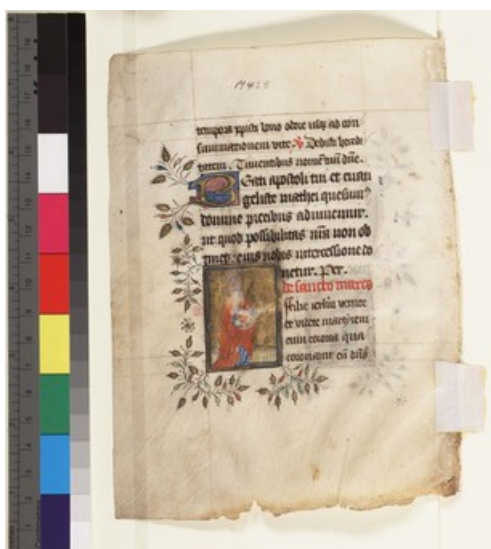 tempora
vite. Dedisti heredi
tatem. Timentibus nomen tuũ dñe.
Bẽati apostoli tui et euan
geliste mathei quesum⁹
domine precibus adiuuemur.
ut quod possibilitas nr̃a non ob
tinet. eius nobis intercessione do
netur. Per.
de sancto marco
filie ierlm̃ venite
et videte martirem
cum corona qua
coronauit eũ dñs